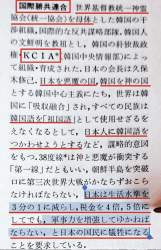 国際勝共連合　世界基督教統一神霊
協会《統一協会》を母体とした韓国の干
渉組織。国際的な反共謀略部隊。韓国人
の文鮮明を教祖とし、韓国の朴独裁政
権・KCIA*（韓国中央情報部）によっ
て組織・育成された。日本の会長は久保
木修己。日本を悪魔の国、韓国を神の国
とする韓国中心主義にたち、世界は韓
国に「吸収融合」され、すべての民族は
韓国語を「祖国語」として使用せざるを
えなくなるとして、日本人に韓国語を
つかわせようとするなど、謀略的意図
をもつ。38度線*は神と悪魔が衝突する
「第一線」だともいい、朝鮮半島を突破
口に第三次世界大戦がかならずおこら
なければならないし、日本は生活水準を
3分の1に減らし、税金を4倍、5倍に
してでも、軍事力を増強してゆかねば
ならない、と日本の国民に犠牲になる
ことを要求している。